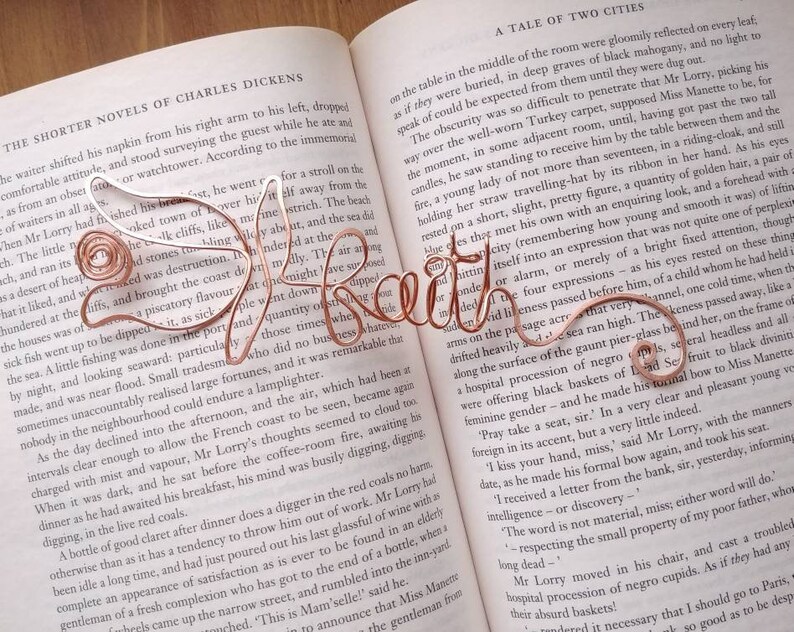 THE SHORTER NOVELS OF CHARLES DICKENS
The waiter shifted his napkin from his right arm to his left, dropped
comfortable attitude, and stood surveying the guest while he ate and
as from an observatory or watchtower. According to the immemorial
of waiters in all ages.
When Mr Lorry had finished his breakfast, he went out for a stroll on the
The little crooked town of Dover hid itself away from the
the chalk cliffs, like a marine ostrich. The beach
and stones tumbling wildly about, and the sea did
what it liked, and what it liked was destruction. It thundered at the and
thundered at the cliffs, and brought the coast down The air among
the houses was of a piscatory flavour that might have supposed
sick fish went up to be dipped in it, as sick people went down to be dipped in
the sea. A little fishing was done in the port, and a quantity of about
by night, and looking seaward: particularly at those times when
made, and was near flood. Small tradesmen, who did no business whatever,
sometimes unaccountably realised large fortunes, and it was remarkable that
nobody in the neighbourhood could endure a lamplighter.
As the day declined into the afternoon, and the air, which had been at
intervals clear enough to allow the French coast to be seen, became again
charged with mist and vapour, Mr Lorry's thoughts seemed to cloud too.
When it was dark, and he sat before the coffee-room fire, awaiting his
dinner as he had awaited his breakfast, his mind was busily digging, digging,
digging, in the live red coals.
A bottle of good claret after dinner does a digger in the red coals no harm,
otherwise than as it has a tendency to throw him out of work. Mr Lorry had
been idle a long time, and had just poured out his last glassful of wine with as
complete an appearance of satisfaction as is ever to be found in an elderly
gentleman of a fresh complexion who has got to the end of a bottle, when a
wheels came up the narrow street, and rumbled into the inn-yard.
untouched. 'This is Mam'selle!' said he.
in to announce that Miss Manette
the gentleman from
A TALE OF TWO CITIES
on the table in the middle of the room were gloomily reflected on every leaf;
as if they were buried, in deep graves of black mahogany, and no light to
speak of could be expected from them until they were dug out.
The obscurity was so difficult to penetrate that Mr Lorry, picking his
way over the well-worn Turkey carpet, supposed Miss Manette to be, for
the moment, in some adjacent room, until, having got past the two tall
candles, he saw standing to receive him by the table between them and the
fire, a young lady of not more than seventeen, in a riding-cloak, and still
holding her straw travelling-hat by its ribbon in her hand. As his eyes
rested on a short, slight, pretty figure, a quantity of golden hair, a pair of
blue eyes that met his own with an enquiring look, and a forehead with a
singular capacity (remembering how young and smooth it was) of lifting
and itself into an expression that was not quite one of perplexity
or wonder, or alarm, or merely of a bright fixed attention, though
the four expressions – as his eyes rested on these things
passed before him, of a child whom he had held
arms on the passage across that very one cold time, when the
drifted heavily and the sea ran high. The likeness passed away, like a
along the surface of the gaunt pier-glass behind her, on the frame of
a hospital procession of negro several headless and all
were offering black baskets of Dead Sea fruit to black divinities
feminine gender – and he made his formal bow to Miss Manette.
'Pray take a seat, sir.' In a very clear and pleasant young voice
foreign in its accent, but a very little indeed.
'I kiss your hand, miss,' said Mr Lorry, with the manners
date, as he made his formal bow again, and took his seat.
'I received a letter from the bank, sir, yesterday, informing
intelligence – or discovery – '
'The word is not material, miss; either word will do.'
' – respecting the small property of my poor father, whom
long dead – '
Mr Lorry moved in his chair, and cast a troubled
hospital procession of negro cupids. As if they had any
their absurd baskets!
rendered it necessary that I should go to Paris,
so good as to be
faith